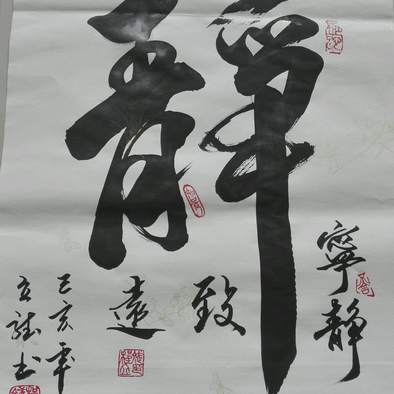 靜
寧靜
致
遠
己亥年
立龍书